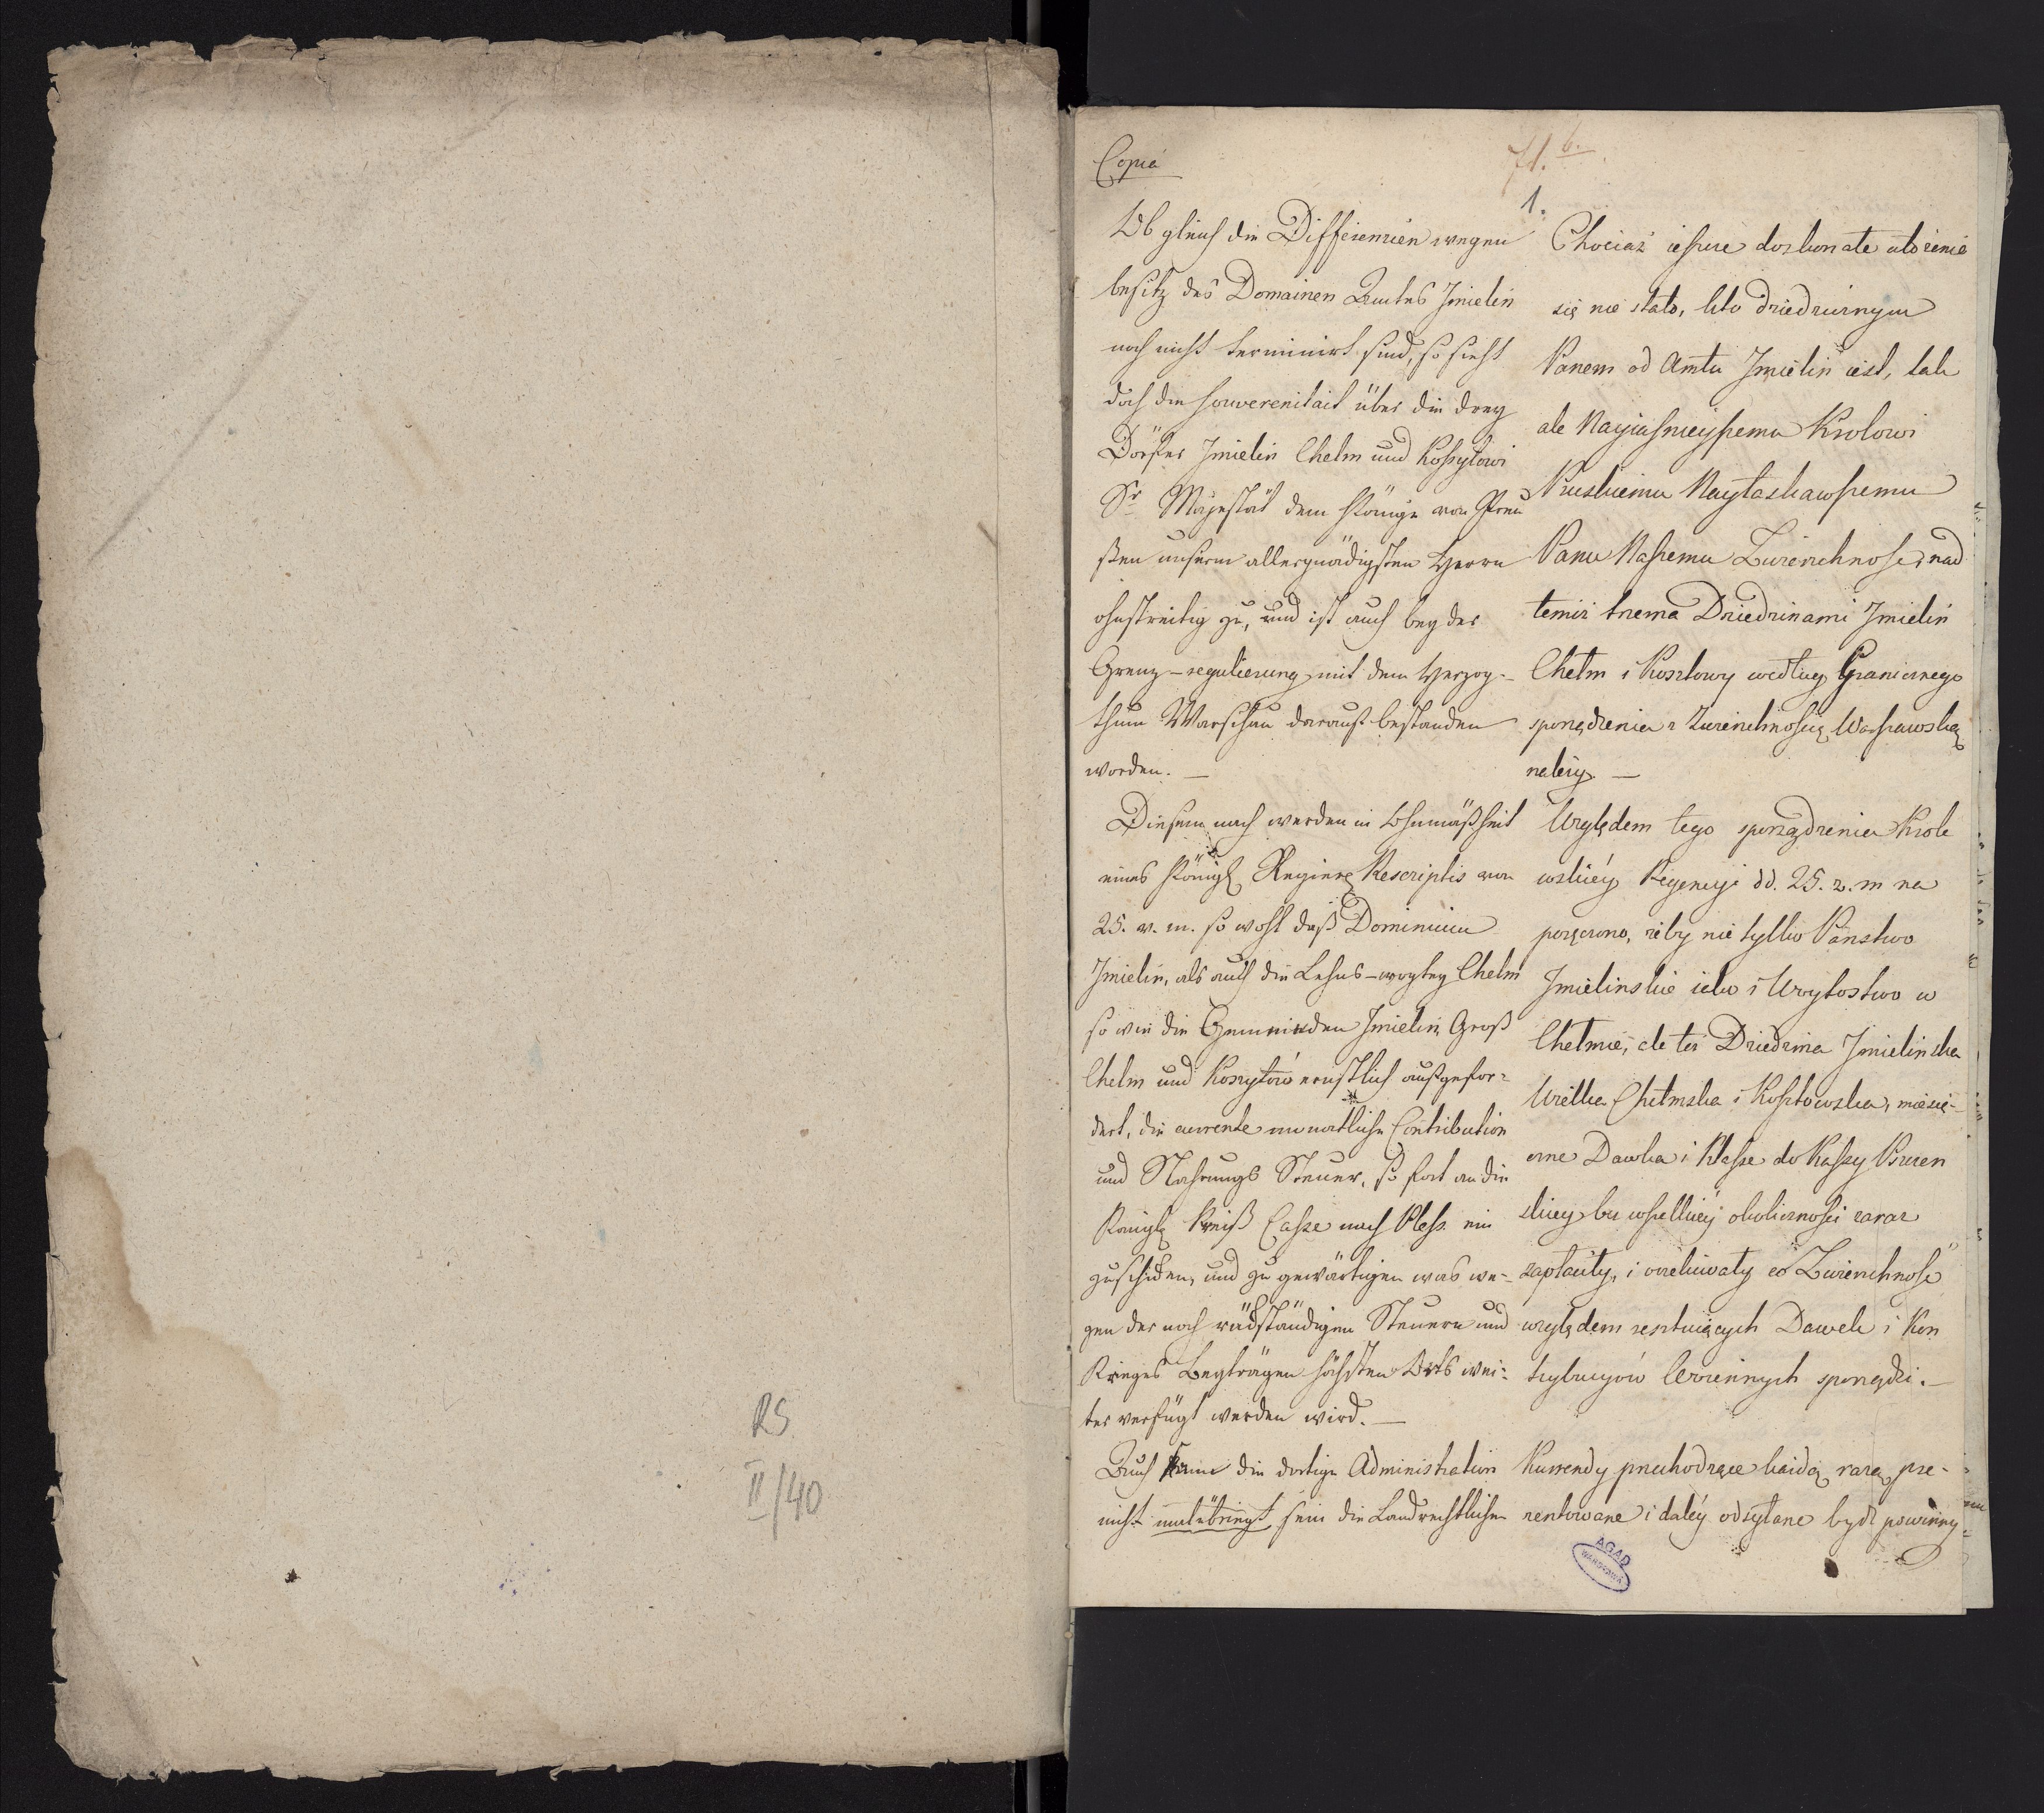 Copia
71. b.
1.
Obgleich die Differenzien wegen
besitz des Domainen Amtes Jmielin
noch nicht terminirt sind, so steht
doch die Souverenitait über die drey
Dörfer Jmielin Chelm und Kossytow
Sr Majestät dem Könige von Preu
ßen unserm allergnädigsten Herrn
ohnstreitig zu, und ist auch bey der
Grenz-regulierung mit dem Herzog-
thum Warschau darauf bestanden
worden. —
Diesem nach werden in Gemäßheit
eines Königl Regierg Rescriptis von
25. v. m. so wohl daß Dominium
Jmielin, als auch die Lehns-voytey Chelm
so wie die Gemeinden Jmielin, Groß
Chelm und Kossytow ernstlich aufgefor-
dert, die currente monatliche Contribution
und Nahrungs Steuer, so fort an die
Königl Kreiß Casse nach Pless ein
zuschicken, und zu gewärtigen was we-
gen der noch rückständigen Steuern und
Krieges Beyträgen höchsten Orts wei-
ter verfügt werden wird. —
Auch kann die dortige Administration
nicht sein die Landrechtlichen
Chociaż ieszcze doskonałe ułożenie
się nie stało, kto dziedzicznym
Panem od Amtu Jmielin iest, tak
ale Nayiaśnieyszemu Krolowi
Pruskiemu Nayłaskawszemu
Panu Naszemu Zwierzchność nad
temiż trzema Dziedzinami Jmielin
Chełm i Kosztowy według Granicznego
sporządzenia z Zwierzchnością Warszawską
należy —
Względem tego sporządzenia Krole
wskiéy Regencyi dd. 25. z. m na
poręczono, żeby nie tylko Państwo
Jmielinskie iako i Woytostwo w
Chełmie, ale też Dziedzina Jmielinska
Wielka Chełmska i Kosztowska, miesię-
czne Dawka i Klasse do Kassy Pszczen
skiey bez wszelkiéy okoliczności zaraz
zapłaciły, i oczekiwały co Zwierzchność
względem resztuiących Dawek i Kon
trybucyów Woiennych sporządzi. —
Kurrendy przechodzące każdą razą pre-
zentowane i daléy odsyłane bydź powinny
AGAD
WARSZAWA
RS
II/40